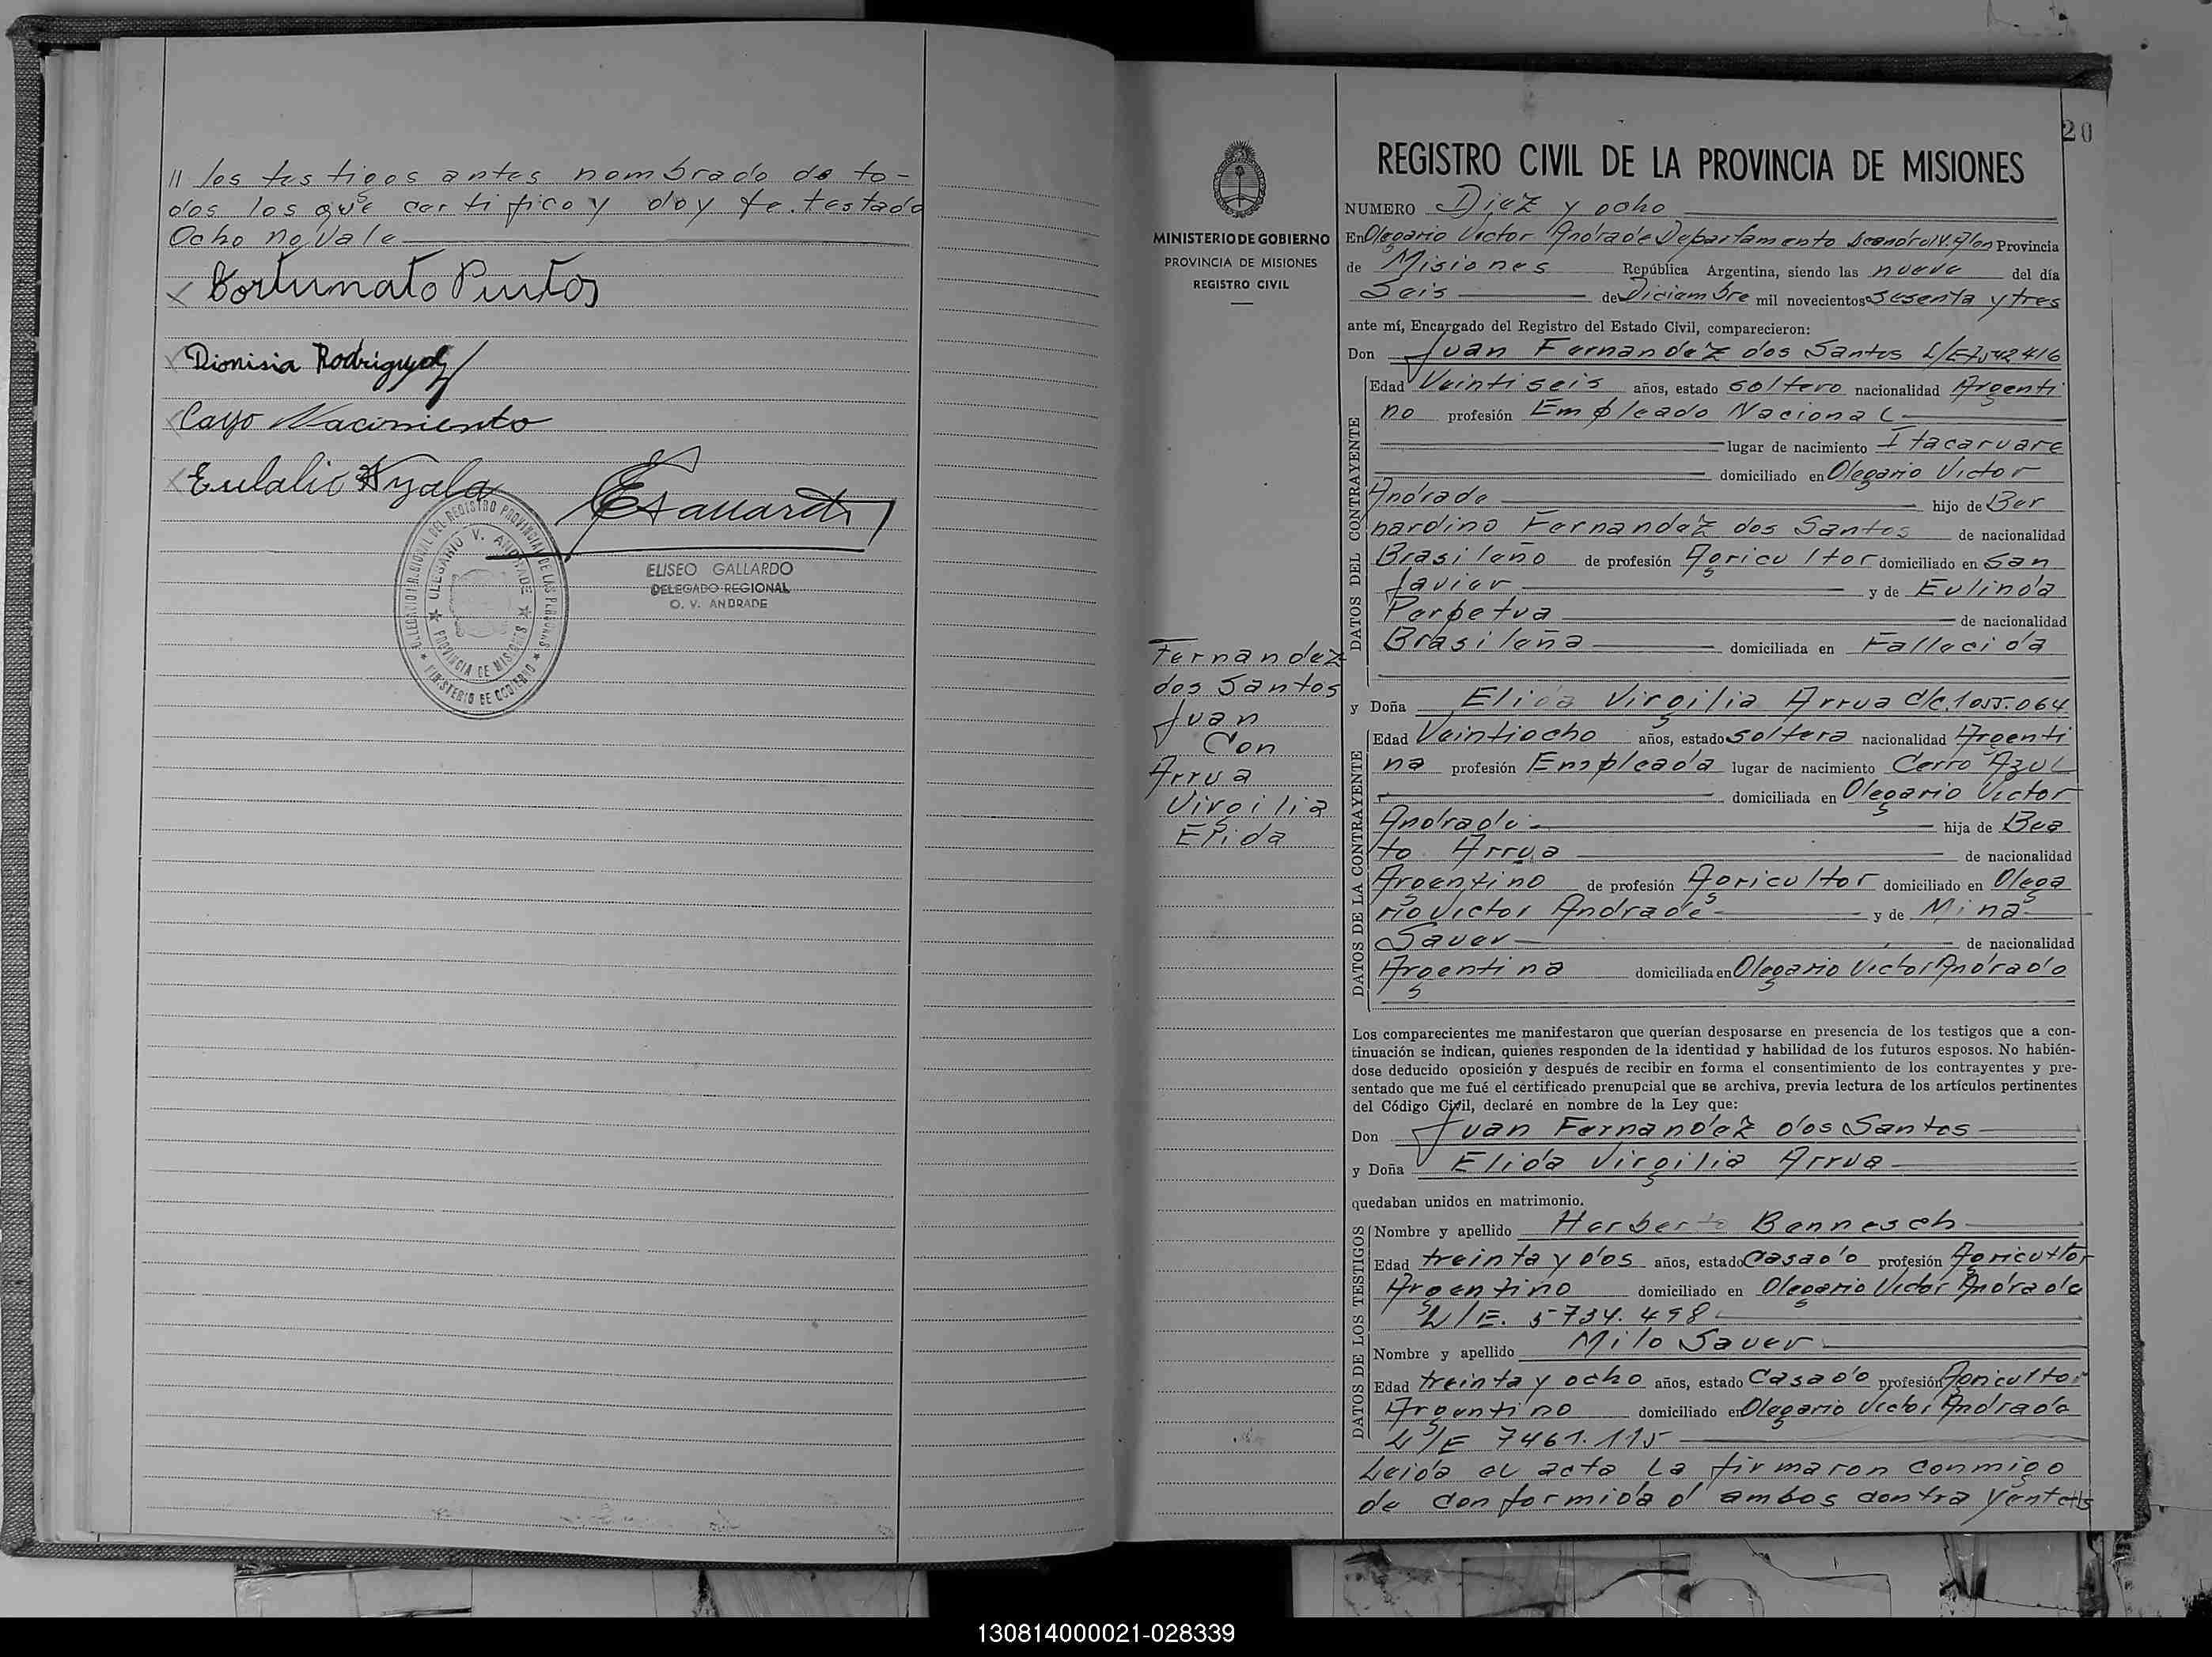 // los testigos antes nombrado de to-
dos los que certifico y doy fe. testado
Ocho no Vale
Fortunato Pintos
Dionisia Rodriguez
Cayo Nacimiento
Eulalio Ayala
EGallardo
DEL REGISTRO PROVINCIAL DE LAS PERSONAS
OLEGARIO V. ANDRADE
PROVINCIA DE MISIONES
MINISTERIO DE GOBIERNO
ELISEO GALLARDO
DELEGADO REGIONAL
O. V. ANDRADE
20
MINISTERIO DE GOBIERNO
PROVINCIA DE MISIONES
REGISTRO CIVIL
Fernandez
dos Santos
Juan
Con
Arrua
Virgilia
Elida
REGISTRO CIVIL DE LA PROVINCIA DE MISIONES
NUMERO Diez y ocho
En Olegario Victor Andrade Departamento Leandro N. Alen Provincia
de Misiones República Argentina, siendo las nueve del día
Seis de Diciembre mil novecientos sesenta y tres
ante mí, Encargado del Registro del Estado Civil, comparecieron:
Don Juan Fernandez dos Santos L/E 7.542416
DATOS DEL CONTRAYENTE
Edad Veintiseis años, estado soltero nacionalidad Argenti
no profesión Empleado Nacional
lugar de nacimiento Itacaruare
domiciliado en Olegario Victor
Andrade hijo de Ber
nardino Fernandez dos Santos de nacionalidad
Brasileño de profesión Agricultor domiciliado en San
Javier y de Eulinda
Perpetua de nacionalidad
Brasileña domiciliada en Fallecida
y Doña Elida Virgilia Arrua c/c. 1055.064
DATOS DE LA CONTRAYENTE
Edad Veintiocho años, estado soltera nacionalidad Argenti
na profesión Empleada lugar de nacimiento Cerro Azul
domiciliada en Olegario Victor
Andrade hija de Bea
to Arrua de nacionalidad
Argentino de profesión Agricultor domiciliado en Olega
rio Victor Andrade y de Mina
Sauer de nacionalidad
Argentina domiciliada en Olegario Victor Andrade
Los comparecientes me manifestaron que querían desposarse en presencia de los testigos que a con-
tinuación se indican, quienes responden de la identidad y habilidad de los futuros esposos. No habién-
dose deducido oposición y después de recibir en forma el consentimiento de los contrayentes y pre-
sentado que me fué el certificado prenupcial que se archiva, previa lectura de los artículos pertinentes
del Código Civil, declaré en nombre de la Ley que:
Don Juan Fernandez dos Santos
y Doña Elida Virgilia Arrua
quedaban unidos en matrimonio.
DATOS DE LOS TESTIGOS
Nombre y apellido Herberto Bennesch
Edad treinta y dos años, estado Casado profesión Agricultor
Argentino domiciliado en Olegario Victor Andrade
L/E. 5734.498
Nombre y apellido Milo Sauer
Edad treinta y ocho años, estado Casado profesión Agricultor
Argentino domiciliado en Olegario Victor Andrade
L/E 7461.115
Leida el acta La firmaron conmigo
de conformidad ambos contrayentes
130814000021-028339